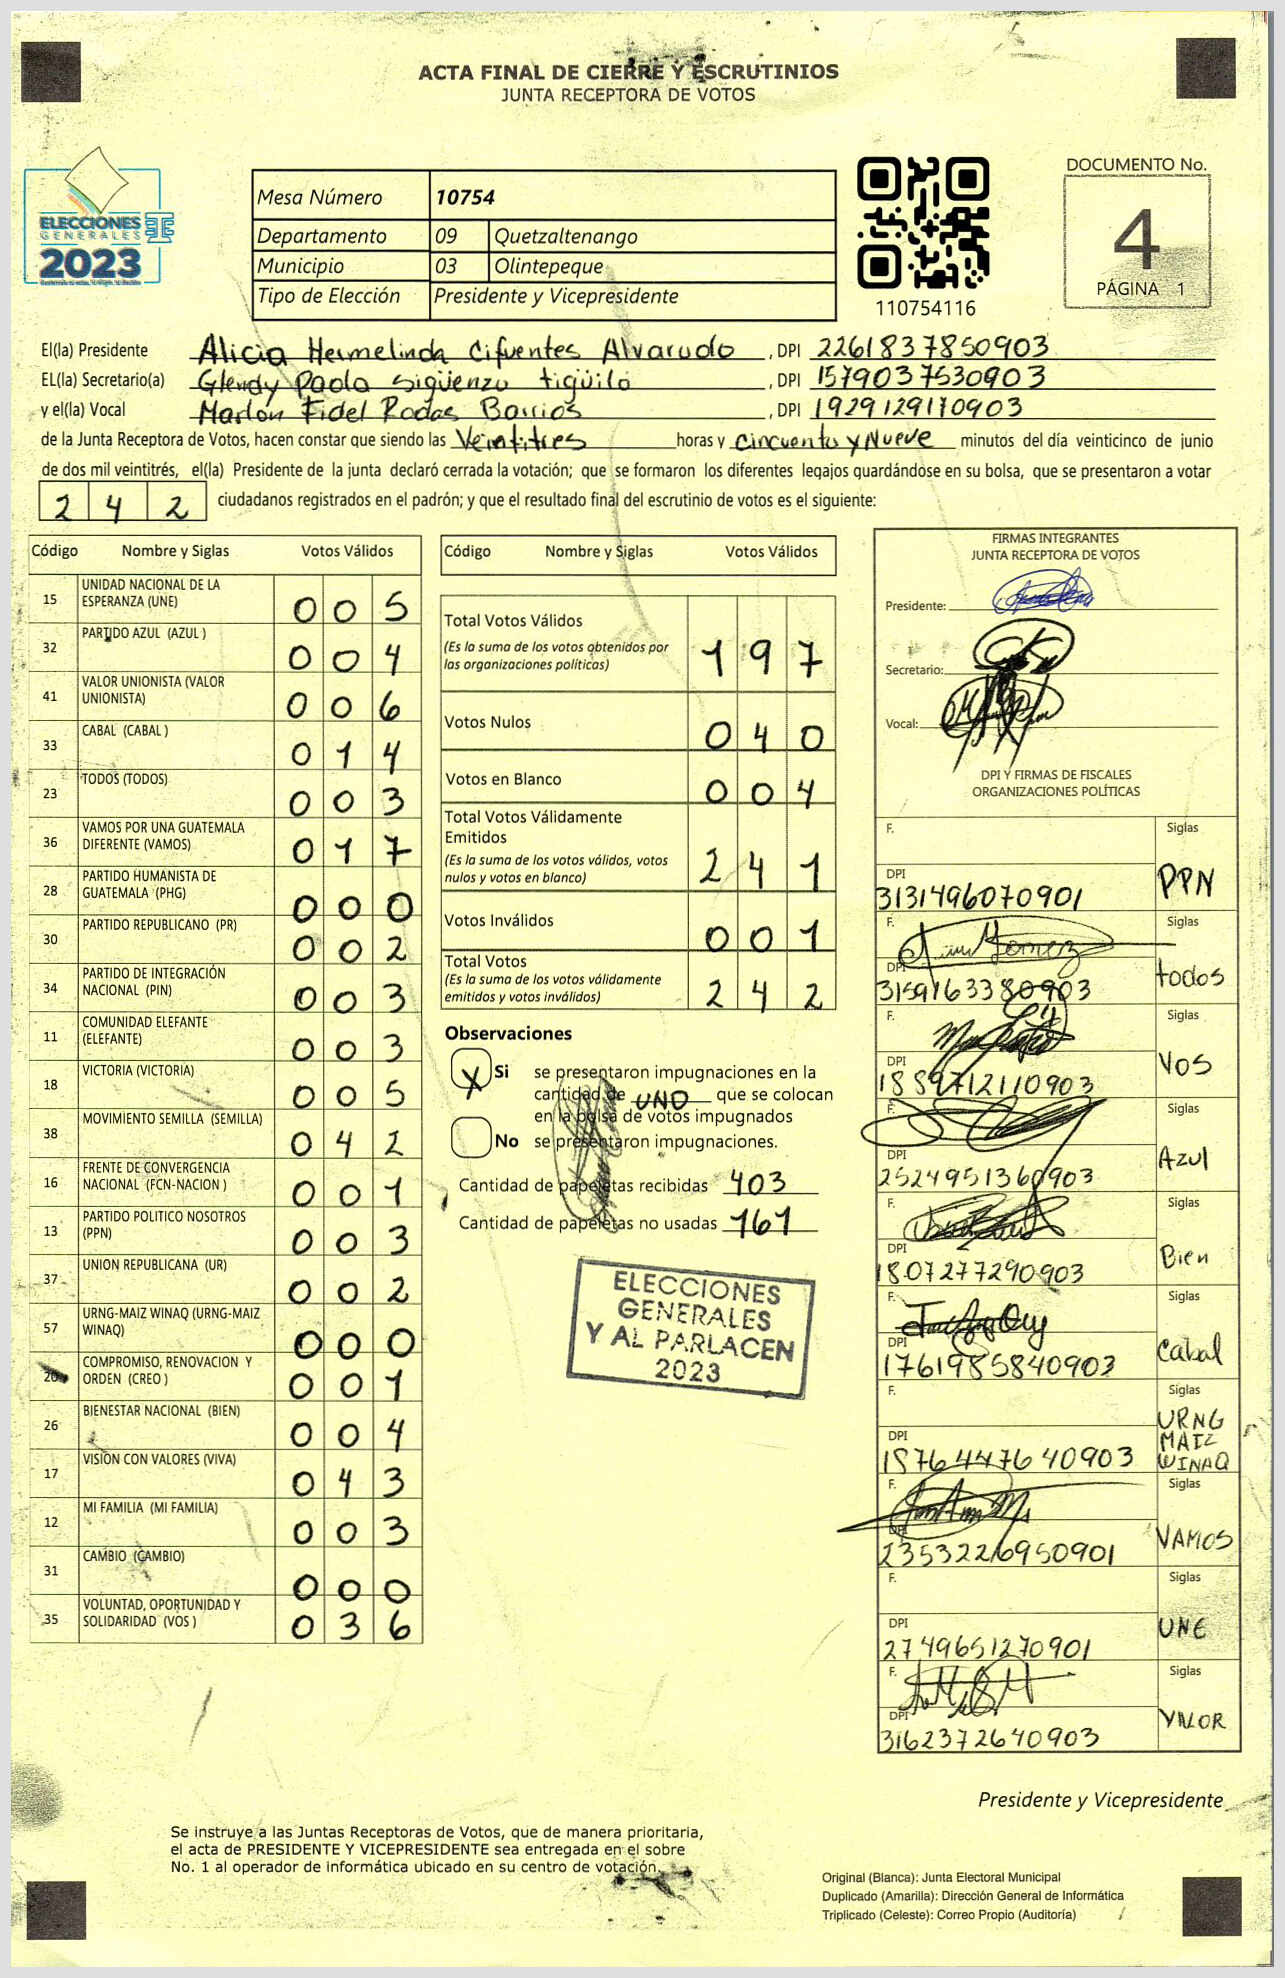 ACTA FINAL DE CIERRE Y ESCRUTINIOS
JUNTA RECEPTORA DE VOTOS
ELECCIONES
GENERALES
2023
Mesa Número 10754
Departamento 09 Quetzaltenango
Municipio 03 Olintepeque
Tipo de Elección Presidente y Vicepresidente
110754116
DOCUMENTO No.
4
PÁGINA 1
El(la) Presidente Alicia Hermelinda Cifuentes Alvarado , DPI 2261837850903
EL(la) Secretario(a) Glendy Paola Sigüenza tigüilá , DPI 1579037530903
y el(la) Vocal Marlon Fidel Rodas Barrios , DPI 1929129170903
de la Junta Receptora de Votos, hacen constar que siendo las Veintitres horas y cincuenta y Nueve minutos del día veinticinco de junio
de dos mil veintitrés, el(la) Presidente de la junta declaró cerrada la votación; que se formaron los diferentes legajos guardándose en su bolsa, que se presentaron a votar
2 4 2 ciudadanos registrados en el padrón; y que el resultado final del escrutinio de votos es el siguiente:
Código Nombre y Siglas Votos Válidos
15 UNIDAD NACIONAL DE LA ESPERANZA (UNE) 0 0 5
32 PARTIDO AZUL (AZUL ) 0 0 4
41 VALOR UNIONISTA (VALOR UNIONISTA) 0 0 6
33 CABAL (CABAL ) 0 1 4
23 TODOS (TODOS) 0 0 3
36 VAMOS POR UNA GUATEMALA DIFERENTE (VAMOS) 0 1 7
28 PARTIDO HUMANISTA DE GUATEMALA (PHG) 0 0 0
30 PARTIDO REPUBLICANO (PR) 0 0 2
34 PARTIDO DE INTEGRACIÓN NACIONAL (PIN) 0 0 3
11 COMUNIDAD ELEFANTE (ELEFANTE) 0 0 3
18 VICTORIA (VICTORIA) 0 0 5
38 MOVIMIENTO SEMILLA (SEMILLA) 0 4 2
16 FRENTE DE CONVERGENCIA NACIONAL (FCN-NACION ) 0 0 1
13 PARTIDO POLITICO NOSOTROS (PPN) 0 0 3
37 UNION REPUBLICANA (UR) 0 0 2
57 URNG-MAIZ WINAQ (URNG-MAIZ WINAQ) 0 0 0
20 COMPROMISO, RENOVACION Y ORDEN (CREO ) 0 0 1
26 BIENESTAR NACIONAL (BIEN) 0 0 4
17 VISION CON VALORES (VIVA) 0 4 3
12 MI FAMILIA (MI FAMILIA) 0 0 3
31 CAMBIO (CAMBIO) 0 0 0
35 VOLUNTAD, OPORTUNIDAD Y SOLIDARIDAD (VOS ) 0 3 6
Código Nombre y Siglas Votos Válidos
Total Votos Válidos 1 9 7
(Es la suma de los votos obtenidos por
las organizaciones políticas)
Votos Nulos 0 4 0
Votos en Blanco 0 0 4
Total Votos Válidamente
Emitidos 2 4 1
(Es la suma de los votos válidos, votos
nulos y votos en blanco)
Votos Inválidos 0 0 1
Total Votos 2 4 2
(Es la suma de los votos válidamente
emitidos y votos inválidos)
Observaciones
X Si se presentaron impugnaciones en la
cantidad de UNO que se colocan
en la bolsa de votos impugnados
No se presentaron impugnaciones.
Cantidad de papeletas recibidas 403
Cantidad de papeletas no usadas 161
ELECCIONES
GENERALES
Y AL PARLACEN
2023
FIRMAS INTEGRANTES
JUNTA RECEPTORA DE VOTOS
Presidente:
Secretario:
Vocal:
DPI Y FIRMAS DE FISCALES
ORGANIZACIONES POLÍTICAS
F. Siglas
DPI 3131496070901 PPN
F. Siglas
DPI 3159163380903 todos
F. Siglas
DPI 1889712110903 VOS
F. Siglas
DPI 2524951360903 Azul
Siglas
DPI 1807277290903 Bien
F. Siglas
DPI 1761985840903 Cabal
F. Siglas
DPI 1876447640903 URNG MAIZ WINAQ
F. Siglas
DPI 2353226950901 VAMOS
F. Siglas
DPI 2749651270901 UNE
F. Siglas
DPI 3162372640903 VALOR
Presidente y Vicepresidente
Se instruye a las Juntas Receptoras de Votos, que de manera prioritaria,
el acta de PRESIDENTE Y VICEPRESIDENTE sea entregada en el sobre
No. 1 al operador de informática ubicado en su centro de votación.
Original (Blanca): Junta Electoral Municipal
Duplicado (Amarilla): Dirección General de Informática
Triplicado (Celeste): Correo Propio (Auditoría)